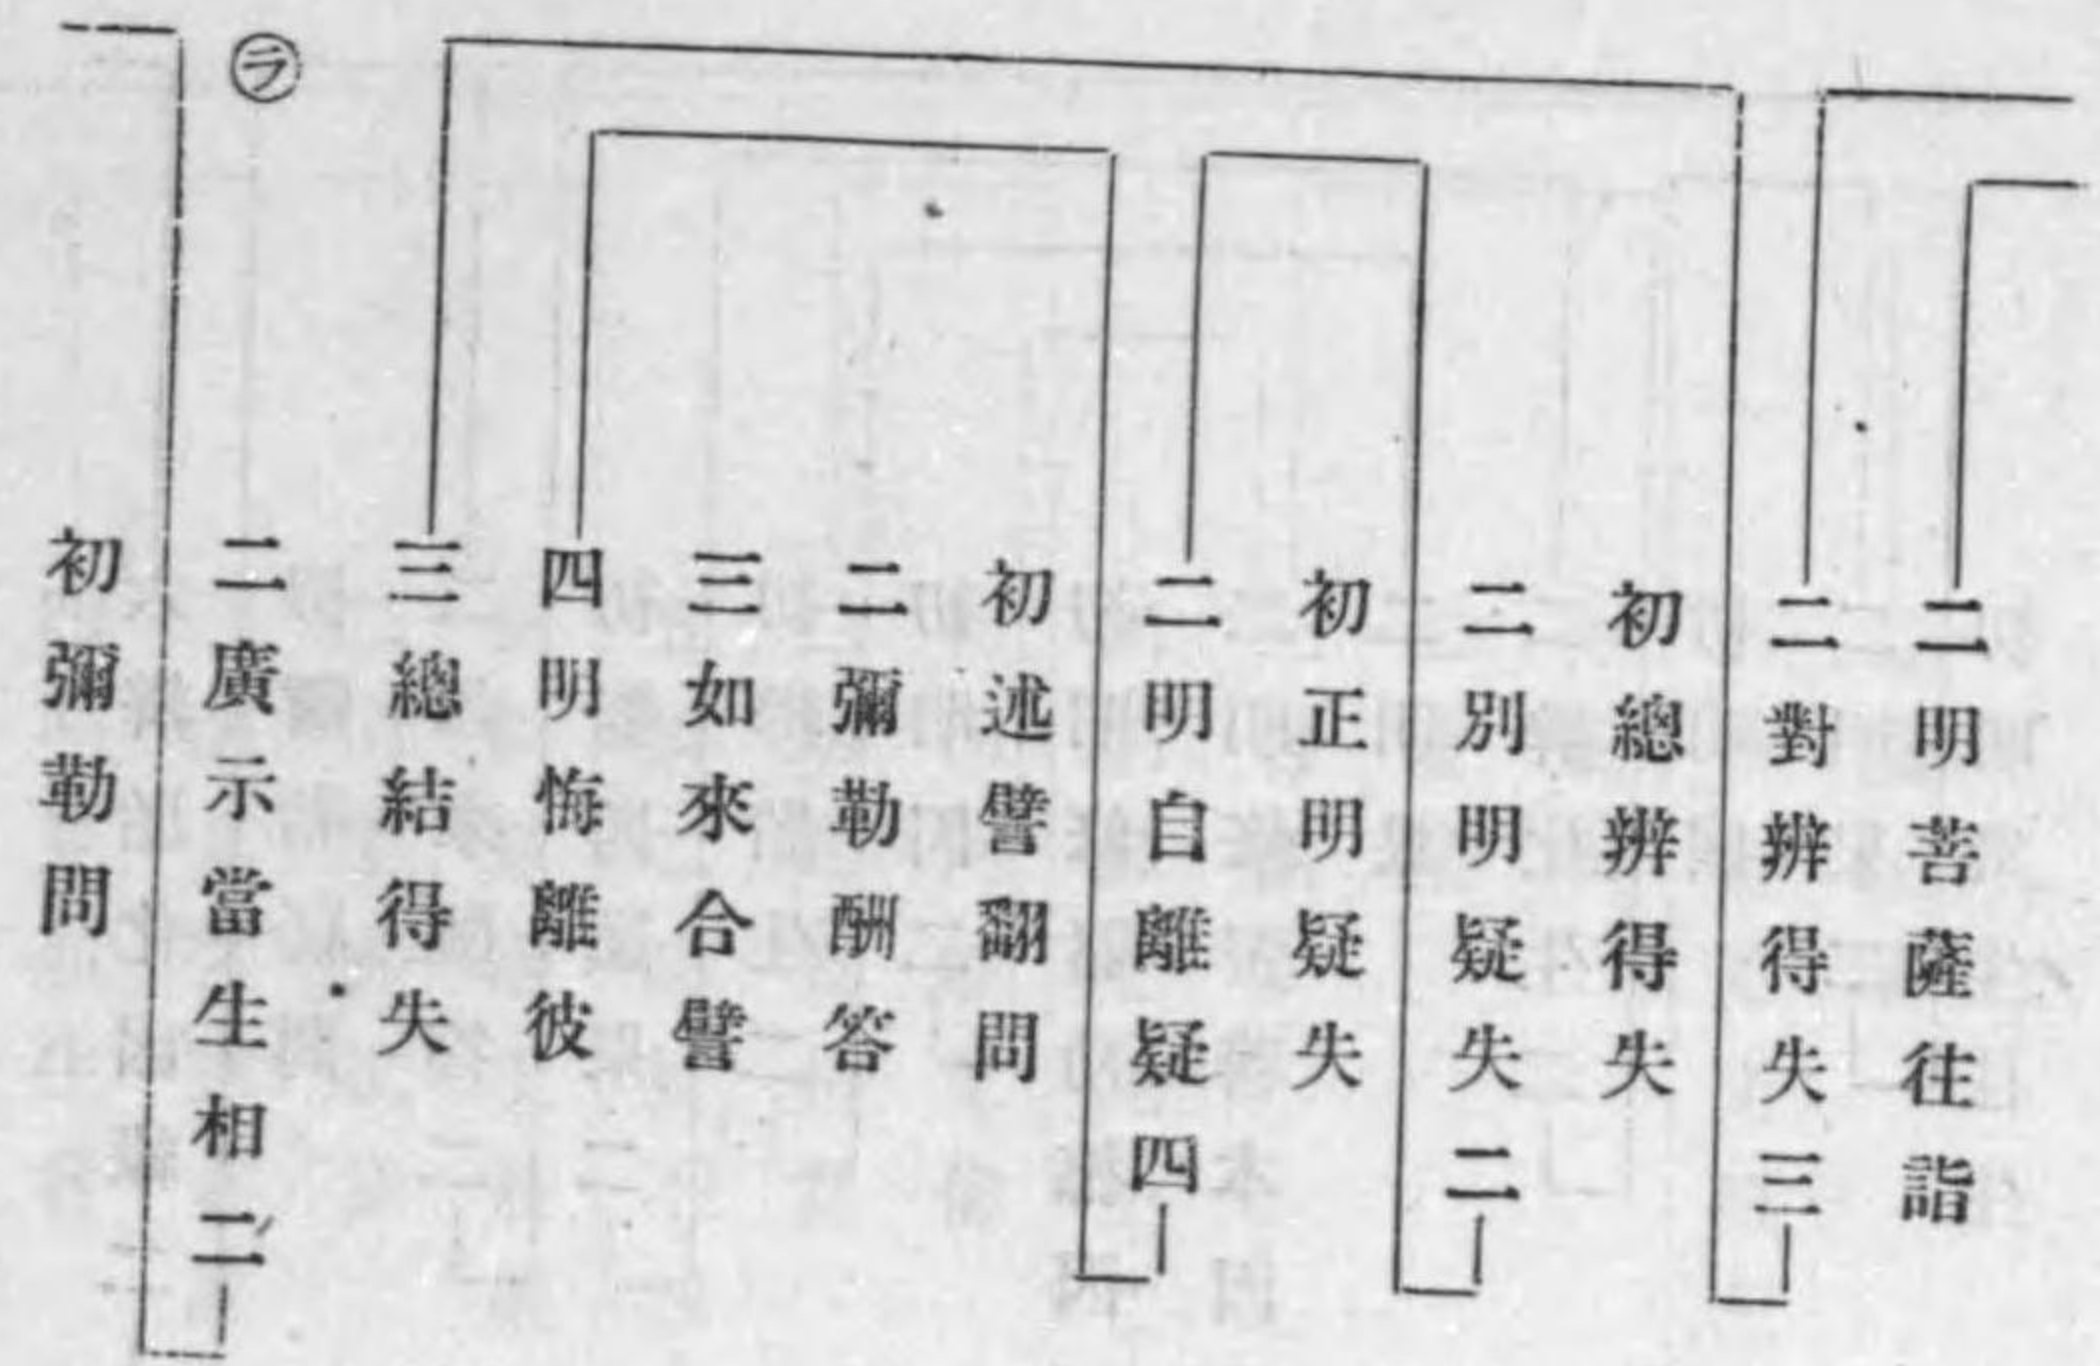 二明菩薩往詣
二對辨得失三
初總辨得失
二別明疑失二
初正明疑失
二明自離疑四
初述譬翻問
二彌勒酬答
三如來合譬
四明悔離彼
三總結得失
㋶
二廣示當生相二
初彌勒問